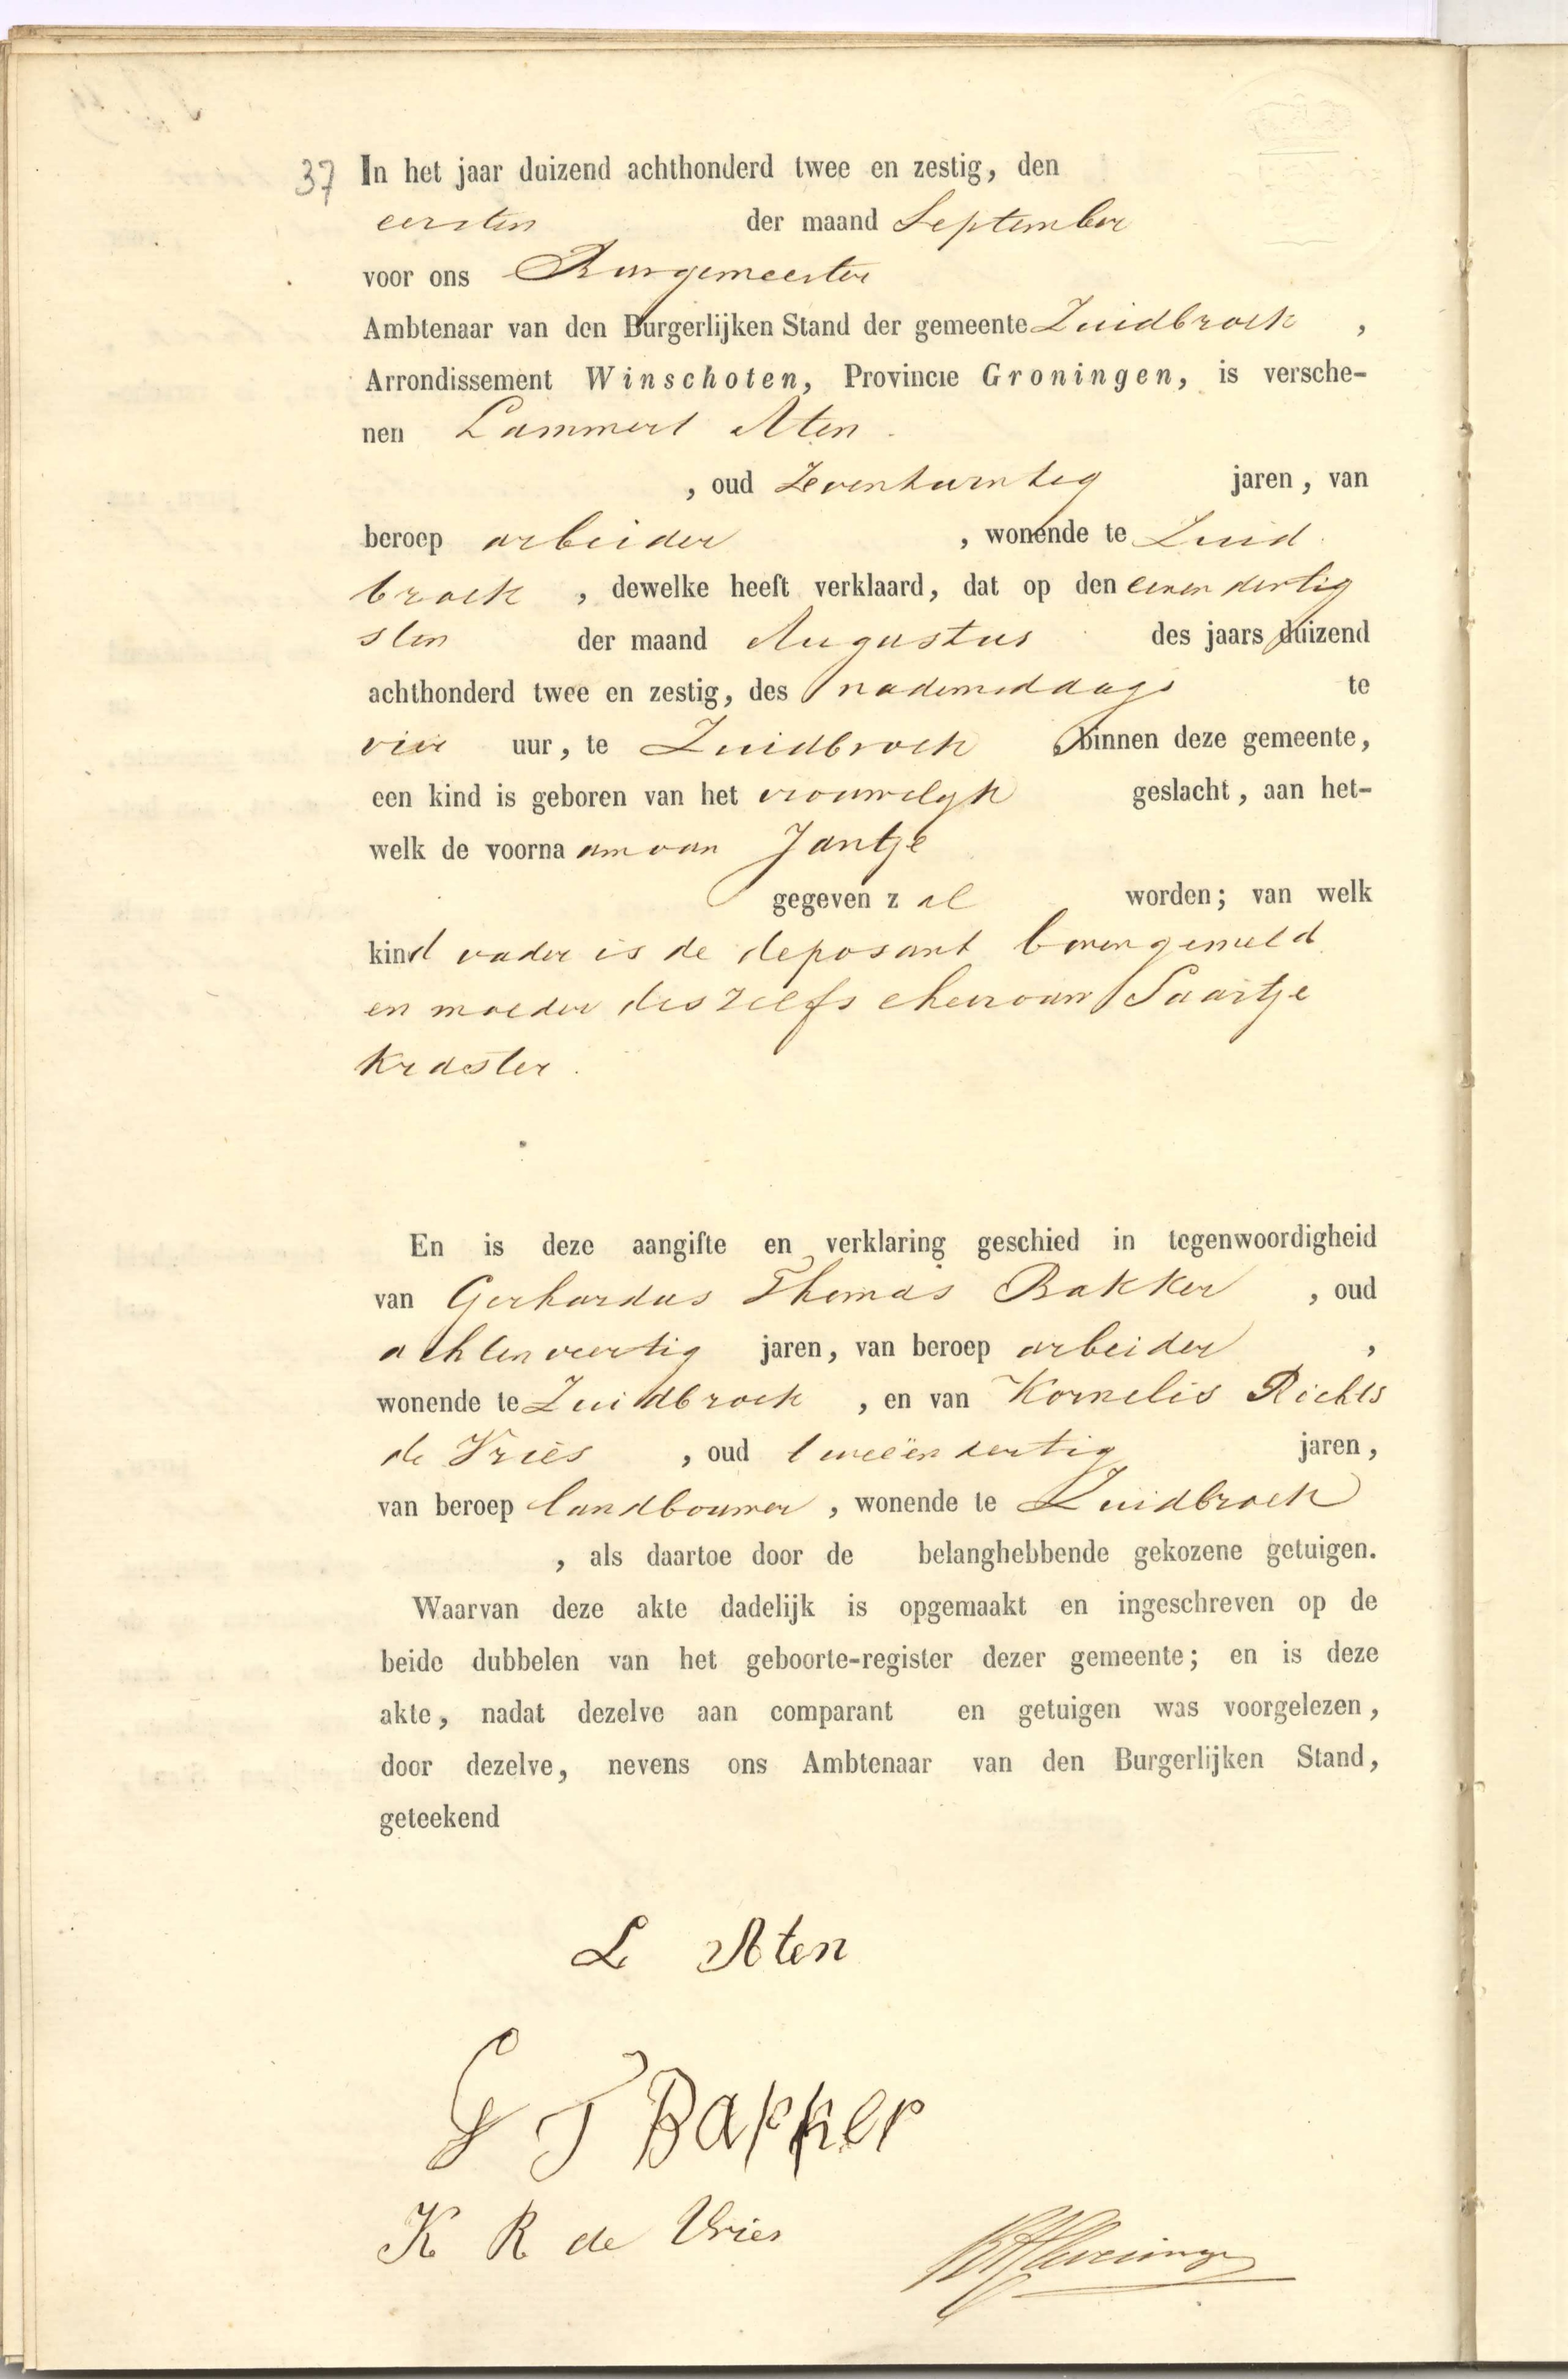 37 In het jaar duizend achthonderd twee en zestig, den
eersten der maand September
voor ons Burgemeester
Ambtenaar van den Burgerlijken Stand der gemeente Zuidbroek ,
Arrondissement Winschoten, Provincie Groningen, is versche-
nen Lammert Aten
, oud Zevenentwintig jaren, van
beroep arbeider , wonende te Zuid
broek , dewelke heeft verklaard, dat op den eenendertig
sten der maand Augustus des jaars duizend
achthonderd twee en zestig, des nademiddags te
vier uur, te Zuidbroek binnen deze gemeente,
een kind is geboren van het vrouwelyk geslacht, aan het-
welk de voornaam van Jantje
gegeven zal worden; van welk
kind vader is de deposant bovengemeld
en moeder deszelfs ehevrouw Saartje
Kraster.
En is deze aangifte en verklaring geschied in tegenwoordigheid
van Gerhardus Thomas Bakker , oud
achtenveertig jaren, van beroep arbeider ,
wonende te Zuidbroek , en van Kornelis Richts
de Vries , oud tweeëndertig jaren,
van beroep landbouwer , wonende te Zuidbroek
, als daartoe door de belanghebbende gekozene getuigen.
Waarvan deze akte dadelijk is opgemaakt en ingeschreven op de
beide dubbelen van het geboorte-register dezer gemeente; en is deze
akte, nadat dezelve aan comparant en getuigen was voorgelezen,
door dezelve, nevens ons Ambtenaar van den Burgerlijken Stand,
geteekend
L Aten
G T Bakker
K R de Vries